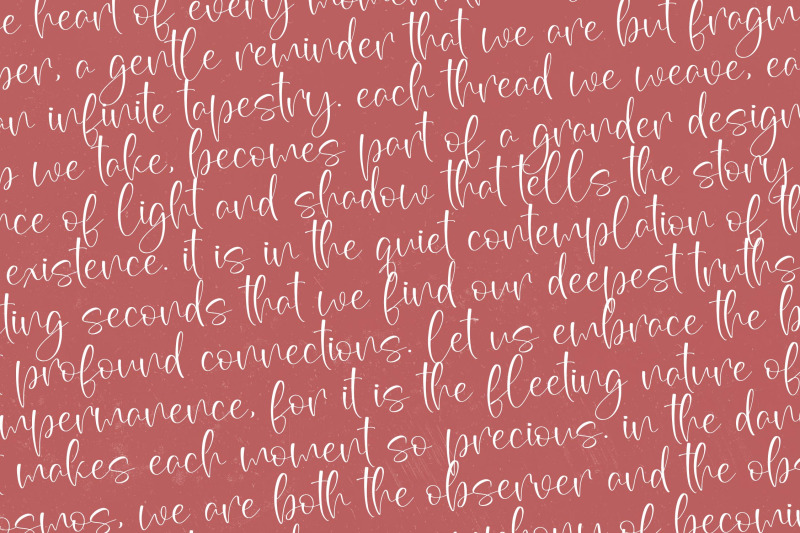 e heart of every moment
per, a gentle reminder that we are but fragm
an infinite tapestry. each thread we weave, ea
p we take, becomes part of a grander design
nce of light and shadow that tells the story
existence. it is in the quiet contemplation of th
ting seconds that we find our deepest truths
profound connections. let us embrace the b
mpermanence, for it is the fleeting nature of
makes each moment so precious. in the dan
osmos, we are both the observer and the obs
of becomi